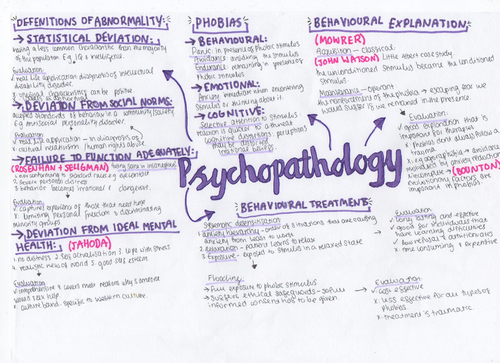 DEFINITIONS OF ABNORMALITY:
→ STATISTICAL DEVIATION:
having a less common characteristic than the majority
of the population E.g. IQ & intelligence
Evaluation
✓ real life application diagnosis of intellectual
disability disorder
x unusual characteristics can be positive
→ DEVIATION FROM SOCIAL NORMS:
accepted standards of behaviour in a community/society
E.g. antisocial personality disorder.
Evaluation
✓ real life application - in diagnosis of
x cultural relativism / human rights abuse
→ FAILURE TO FUNCTION ADEQUATELY:
ROSENHAN + SELIGMAN
→ not conforming to standard social rules
→ severe personal distress
→ behaviour becomes irrational & dangerous.
Evaluation
✓ captures experience of those that need help
x limiting personal freedom & discriminating
minority groups
→ DEVIATION FROM IDEAL MENTAL
HEALTH: (JAHODA)
→ no distress & self actualisation & cope with stress
→ realistic view of world & good self esteem
Evaluation
✓ comprehensive & covers most reasons why someone
would seek help
x culture bound - specific to western culture.
PHOBIAS
→ BEHAVIOURAL:
Panic in presence of phobic stimulus
Avoidance avoiding the stimulus
Endurance remaining in presence of
phobic stimulus
→ EMOTIONAL:
Anxiety emotion when encountering
stimulus or thinking about it
→ COGNITIVE:
Selective attention to stimulus
reaction is greater to a threat
Cognitive distortions (perceptions)
may be distorted
irrational beliefs
Psychopathology
BEHAVIOURAL EXPLANATION:
(MOWRER)
Acquisition - classical
(JOHN WATSON) Little Albert case study.
the unconditioned stimulus became the conditioned
stimulus.
Maintenance - operant
Evaluation
✓ good explanation that is
useful for therapy
x Phobias don't always follow
trauma
(BOUNTON)
BEHAVIOURAL TREATMENT:
Systematic desensitisation
anxiety hierarchy - order of situations that are causing
anxiety from least to worst
Relaxation - patient learns to relax
Exposure - exposed to stimulus in a relaxed state
Evaluation
✓ long lasting and effective
✓ good for individuals that
have learning difficulties
✓ low refusal & attrition rates
x time consuming & expensive
Flooding
→ Full exposure to phobic stimulus
informed consent has to be given
Evaluation
✓ cost effective
x less effective for all types of
phobias.
x Treatment is traumatic